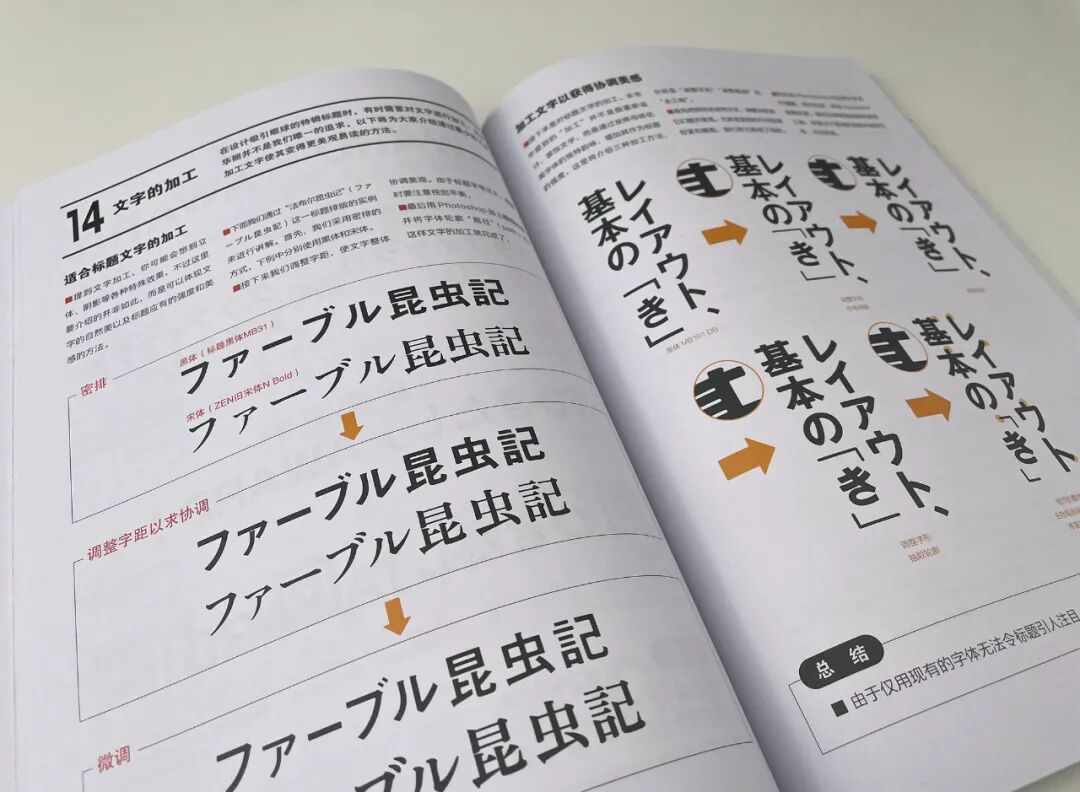 14 文字的加工
在设计吸引眼球的特辑标题时，有时需要对文字进行加工
华丽并不是我们唯一的追求，以下将为大家介绍通过最小
加工文字使其变得更美观易读的方法。
适合标题文字的加工
■提到文字加工，你可能会想到立
体、阴影等各种特殊效果，不过这里
要介绍的并非如此，而是可以体现文
字的自然美以及标题应有的强度和美
感的方法。
■下面我们通过“法布尔昆虫记”（ファ
ーブル昆虫記）这一标题排版的实例
来进行讲解。首先，我们采用密排的
方式，下例中分别使用黑体和宋体。
■接下来我们调整字距，使文字整体
协调美观。由于标题字号
时要注意视觉平衡。
■最后用 Photoshop
并将字体轮廓“路径”
这样文字的加工就完成了。
密排
黑体（标题黑体MB31）
ファーブル昆虫記
宋体（ZEN旧宋体N Bold）
ファーブル昆虫記
调整字距以求协调
ファーブル昆虫記
ファーブル昆虫記
微调
ファーブル昆虫記
ブル昆虫記
加工文字以获得协调美感
■接下来是对标题文字的加工。本书
中提到的“加工”并不是做重新设
计、装饰文字，而是通过发挥传统优
美字体的独特韵味，增加其作为标题
的强度。这里将介绍三种加工方法，
レイアウト、
基本の「き」
黑体 MB101 DB
き
レイアウト、
基本の「き」
き
レイアウト、
基本の「き」
き
レイアウト、
基本の「き」
调整字形
抽取轮廓
き
レイアウト
基本の「き」
总 结
■ 由于仅用现有的字体无法令标题引人注目